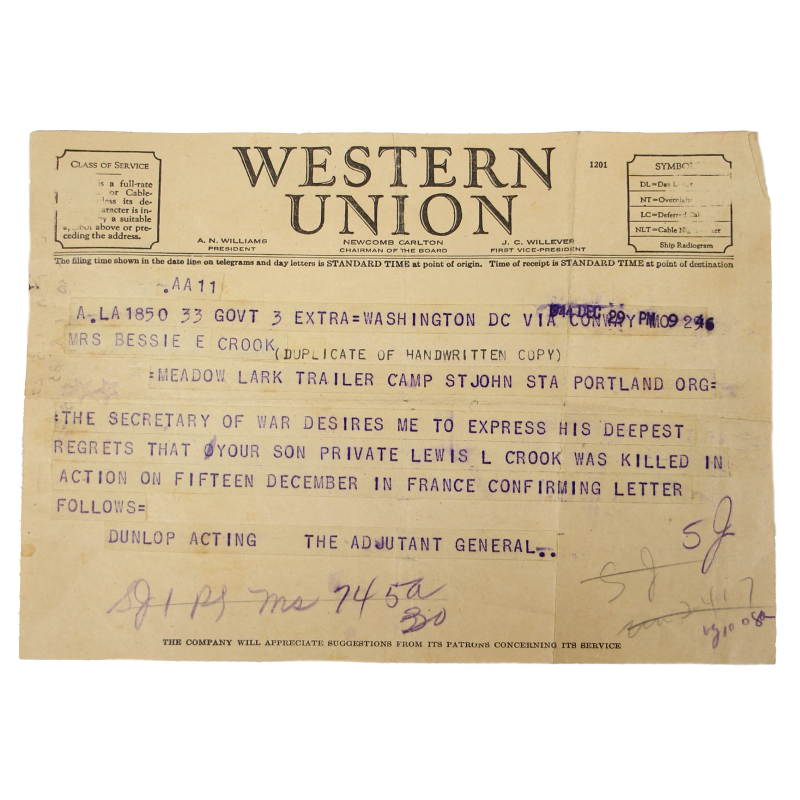 CLASS OF SERVICE
is a full-rate
or Cable-
less its de-
aracter is in-
by a suitable
above or pre-
ceding the address.
WESTERN
UNION
1201
SYMBOL
DL=Day
NT=Overnight
LC=Deferred
NLT=Cable
Ship Radiogram
A. N. WILLIAMS
PRESIDENT
NEWCOMB CARLTON
CHAIRMAN OF THE BOARD
J. C. WILLEVER
FIRST VICE-PRESIDENT
The filing time shown in the date line on telegrams and day letters is STANDARD TIME at point of origin. Time of receipt is STANDARD TIME at point of destination
.AA11
A.LA1850 33 GOVT 3 EXTRA=WASHINGTON DC VIA CONWAY MO 29
1944 DEC 29 PM 9 46
MRS BESSIE E CROOK (DUPLICATE OF HANDWRITTEN COPY)
=MEADOW LARK TRAILER CAMP STJOHN STA PORTLAND ORG=
:THE SECRETARY OF WAR DESIRES ME TO EXPRESS HIS DEEPEST
REGRETS THAT YOUR SON PRIVATE LEWIS L CROOK WAS KILLED IN
ACTION ON FIFTEEN DECEMBER IN FRANCE CONFIRMING LETTER
FOLLOWS=
DUNLOP ACTING THE ADJUTANT GENERAL..
SJ
SJ
2417
745a
30
THE COMPANY WILL APPRECIATE SUGGESTIONS FROM ITS PATRONS CONCERNING ITS SERVICE